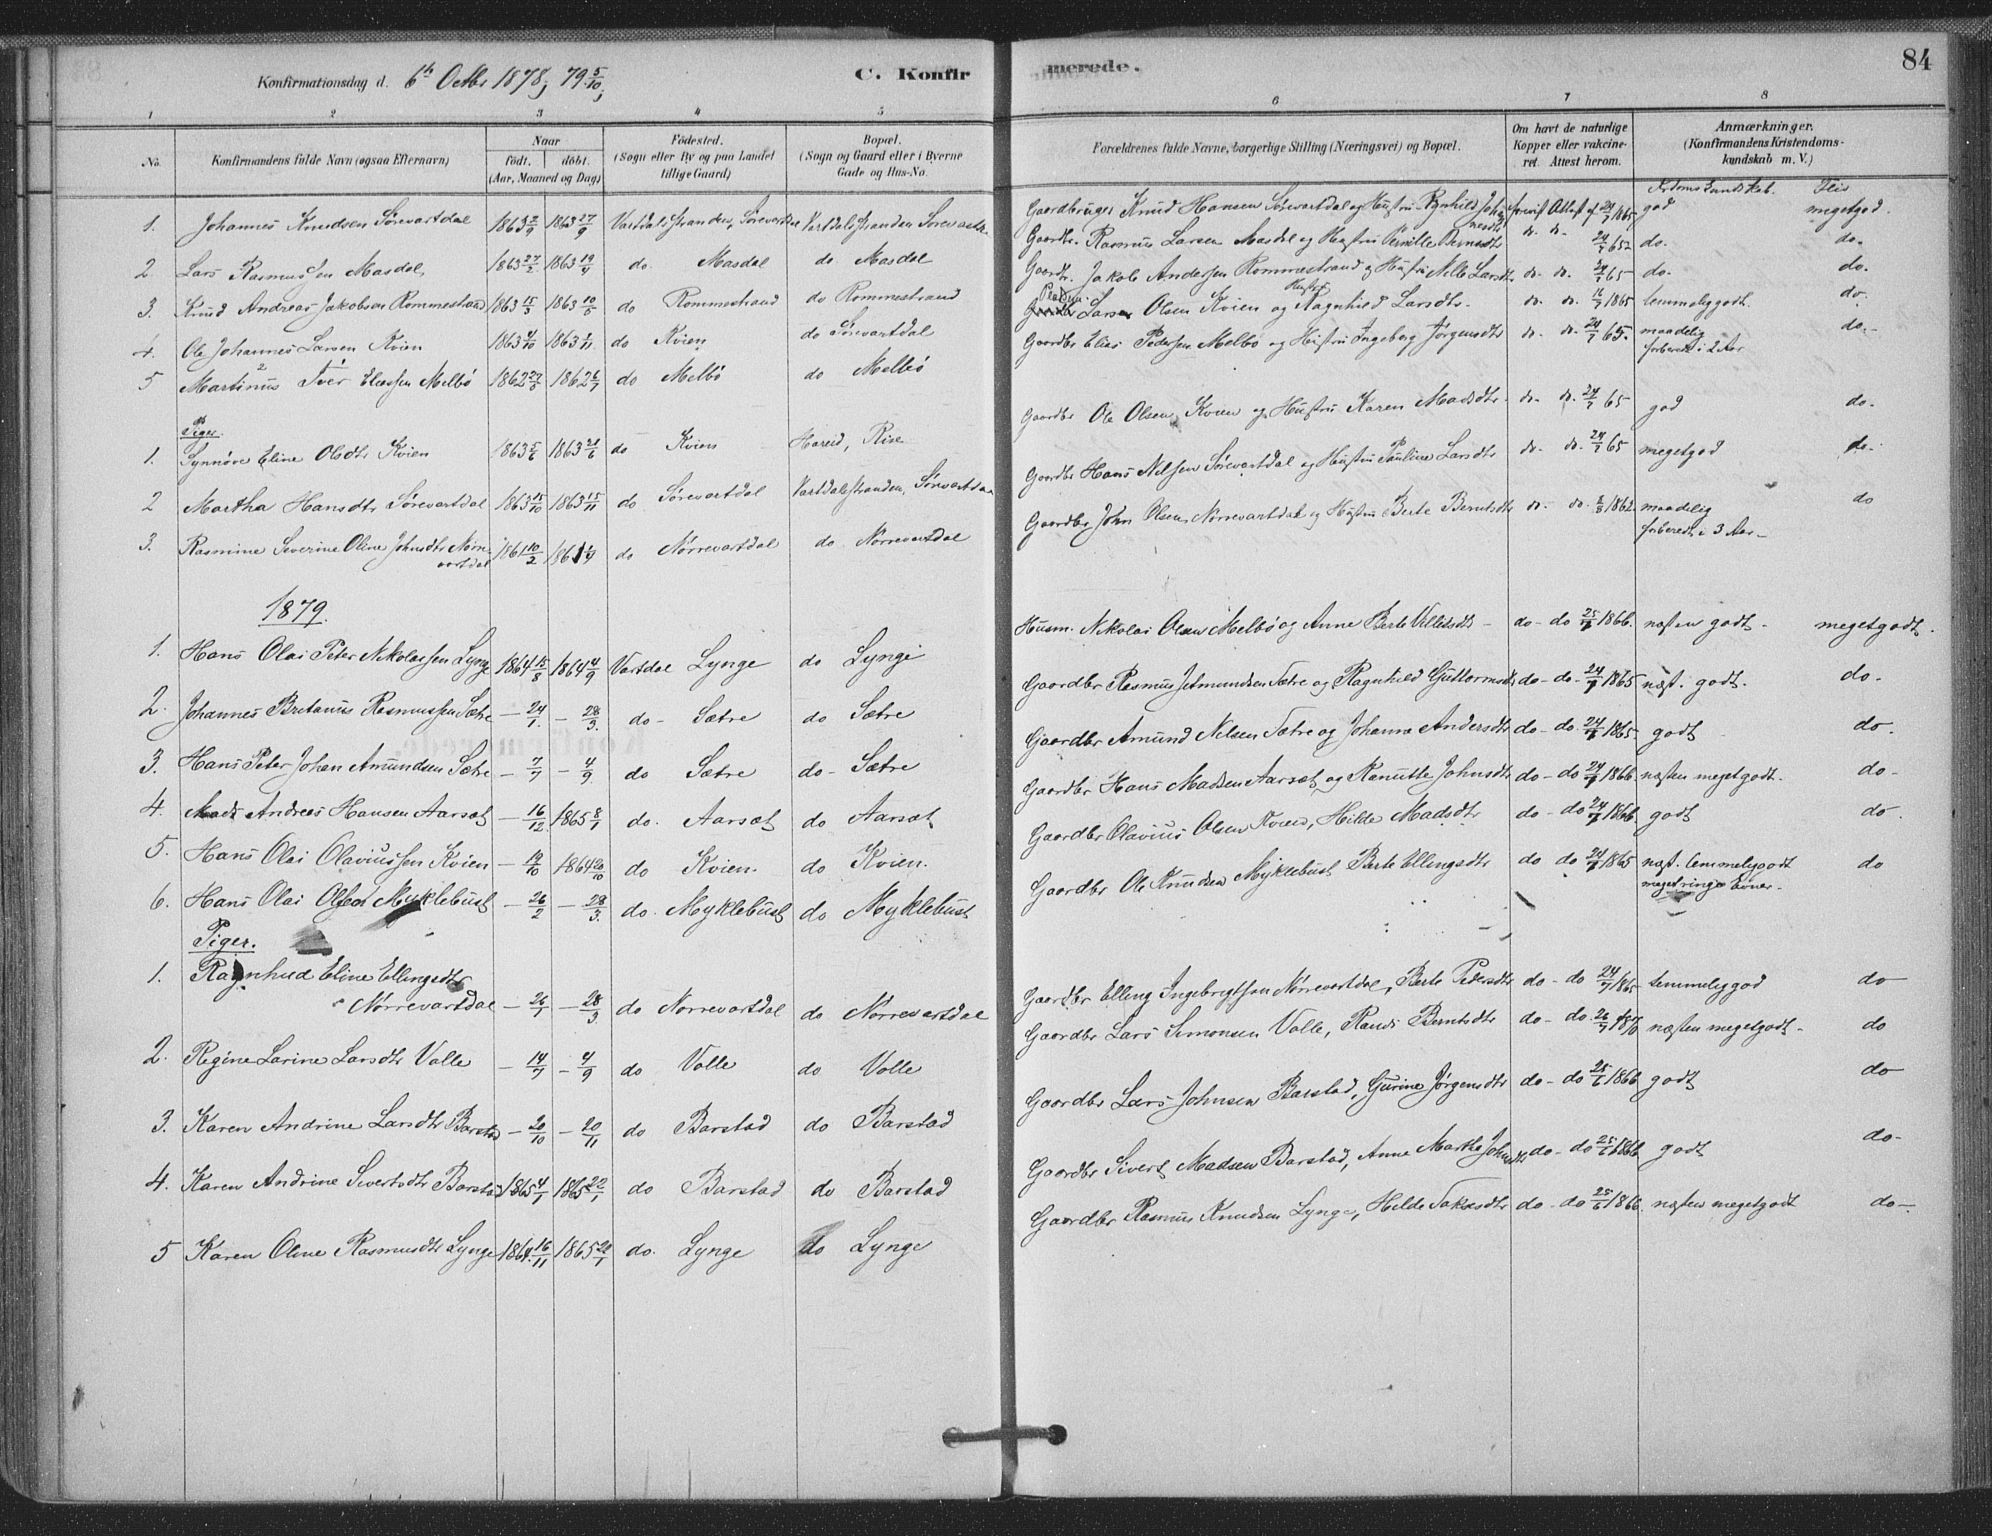 Konfirmationsdag d. 6th Octbr 1878, 79 5/10,
C. Konfirmerede.
84
1 2 3 4 5 6 7 8
No. Konfirmandens fulde Navn (ogsaa Efternavn) Naar født. døbt. (Aar, Maaned og Dag) Fødested. (Sogn eller By og paa Landet tillige Gaard) Bopæl. (Sogn og Gaard eller i Byerne Gade og Hus-No. Forældrenes fulde Navne, borgerlige Stilling (Næringsvei) og Bopæl. Om havt de naturlige Kopper eller vakcineret. Attest herom. Anmærkninger. (Konfirmandens Kristendomskundskab m. V.)
Kundskab. Flid
1. Johannes Knudsen Sørevartdal 1863 2/9 1863 27/9 Vartdalsstranden, Sørevartdal Vartdalsstranden Sørevartd. Gaardbruger Knud Hansen Sørevartdal og Hustru Ragnhild Johannesdtr Attest af 24/7 1865 god megetgod.
2 Lars Rasmussen Masdal 1863 27/2 1863 19/4 do. Masdal do. Masdal Gaardbr. Rasmus Larsen Masdal og Hustru Pernille Berntsdtr do. do. 24/7 65 do. do.
3. Knud Andreas Jakobsen Rommestrand 1863 15/3 1863 10/5 do Rommestrand do Rommestrand Gaardbr. Jakob Andersen Rommestrand og Hustru Nille Larsdtr do. do. 24/7 65 do. do.
4. Ole Johannes Larsen Kvien 1863 4/10 1863 1/11 do Kvien do Sørevartdal Lars Olsen Kvien og Hustru Ragnhild Larsdtr. do. do. 1865 temmeliggodt. do.
5 Martinus Iver Eliassen Melbø 1862 27/5 1862 6/7 do Melbø do Melbø Gaardbr Elias Pedersen Melbø og Hustru Ingeborg Jørgensdtr do. do. 24/7 65. maadelig forberedt i 2 Aar do.
Piger.
1. Synnøve Eline Olsdtr Kvien 1863 5/6 1863 21/6 do Kvien Hareid, Rise Gaardbr Ole Olsen Kvien og Hustru Karen Madsdtr do. do. 24/7 65 god do.
2 Martha Hansdtr Sørevartdal 1863 15/10 1863 15/11 do Sørevartdal Vartdalsstranden, Sørvartdal Gaardbr Hans Nilsen Sørevartdal og Hustru Pauline Larsdtr do. do. 24/7 65 megetgod do.
3. Rasmine Severine Oline Johnsdtr Nørrevartdal 1861 10/2 1861 1/4 do Nørrevartdal do Nørrevartdal Gaardbr John Olsen Nørrevartdal og Hustru Berte Berntsdtr do. do. 1862 maadelig forberedt i 3 Aar do
1879.
1. Hans Olai Peter Nikolaisen Lynge 1864 15/8 1864 4/9 Vartdal Lynge do Lynge Husm. Nikolai Olsen Melbø og Anne Berte Villetsdtr do do 25/6 1866. næsten godt. megetgodt.
2. Johannes Britanus Rasmussen Sætre 24/1. 28/3. do Sætre do Sætre Gaardbr Rasmus Jetmundsen Sætre og Ragnhild Guttormsdtr do do. 24/7 1865 næst. godt. do.
3. Hans Peter Johan Amundsen Sætre 7/7 4/9 do Sætre do Sætre Gaardbr Amund Nilsen Sætre og Johanne Andersdtr do do. 24/7 1865 godt do.
4. Mads Andreas Hansen Aarsæt 16/12 1865 8/1 do. Aarsæt do Aarsæt Gaardbr Hans Madsen Aarsæt og Ranutte Johnsdtr do do 24/7 1866 næsten megetgodt. do
5. Hans Olai Olaviussen Kvien 19/10 1864 20/10 do Kvien do Kvien. Gaardbr Olavius Olsen Kvien, Hilde Madsdtr do do 24/7 1866 godt do
6. Hans Olai Olsen Myklebust 26/2 28/3. do. Myklebust do Myklebust Gaardbr Ole Knudsen Myklebust Berte Ellingsdtr do do 24/7 1865 næst. temmeliggodt megetringe Evner. do
Piger.
1. Ragnhild Eline Ellingsdtr Nørrevartdal 26/1 28/3 do Nørrevartdal do Nørrevartdal Gaardbr Elling Ingebrigtsen Nørrevartdal, Berte Pedersdtr do do 24/7 1865 temmeliggod do
2. Regine Larine Larsdtr Volle 14/7 4/9 do Volle do Volle Gaardbr Lars Simonsen Volle, Randi Berntsdtr do do 26/7 1870 næsten megetgodt. do
3. Karen Andrine Larsdtr Barstad 20/10 20/11 do Barstad do Barstad Gaardbr Lars Johnsen Barstad, Gurine Jørgensdtr do do 25/6 1866 godt do
4. Karen Andrine Sivertsdtr Barstad 1865 4/1 1865 22/1 do Barstad do Barstad Gaardbr Sivert Madsen Barstad, Anne Marthe Johnsdtr do do 25/6 1866 godt do
5 Karen Oline Rasmusdtr Lynge 1864. 16/11 1865 22/1 do. Lynge do Lynge Gaardbr Rasmus Knudsen Lynge, Hilde Jakobsdtr do do 25/6 1866. næsten megetgodt do